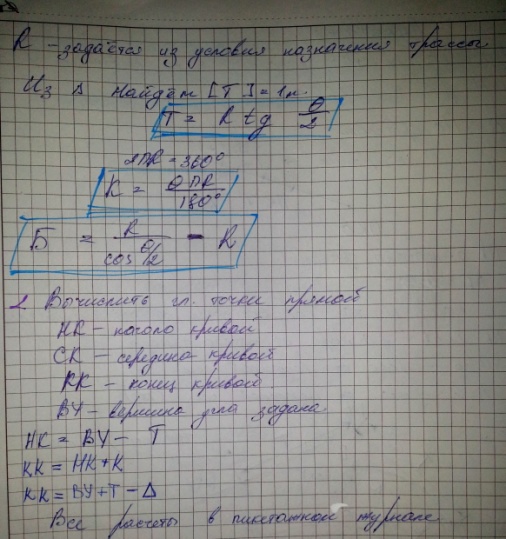 R - задаётся из условия назначения трассы
Из Δ найдем [T] = 1м.
T = R tg θ/2
2ПR = 360°
K = θПR/180°
Б = R/cos θ/2 - R
2 Вочислить гл. точки прямой
НК - начало кривой
СК - середина кривой
КК - конец кривой
ВУ - вершина угла задана
НК = ВУ - T
КК = НК + К
КК = ВУ + T - Δ
Все расчеты в пикетажной журнале